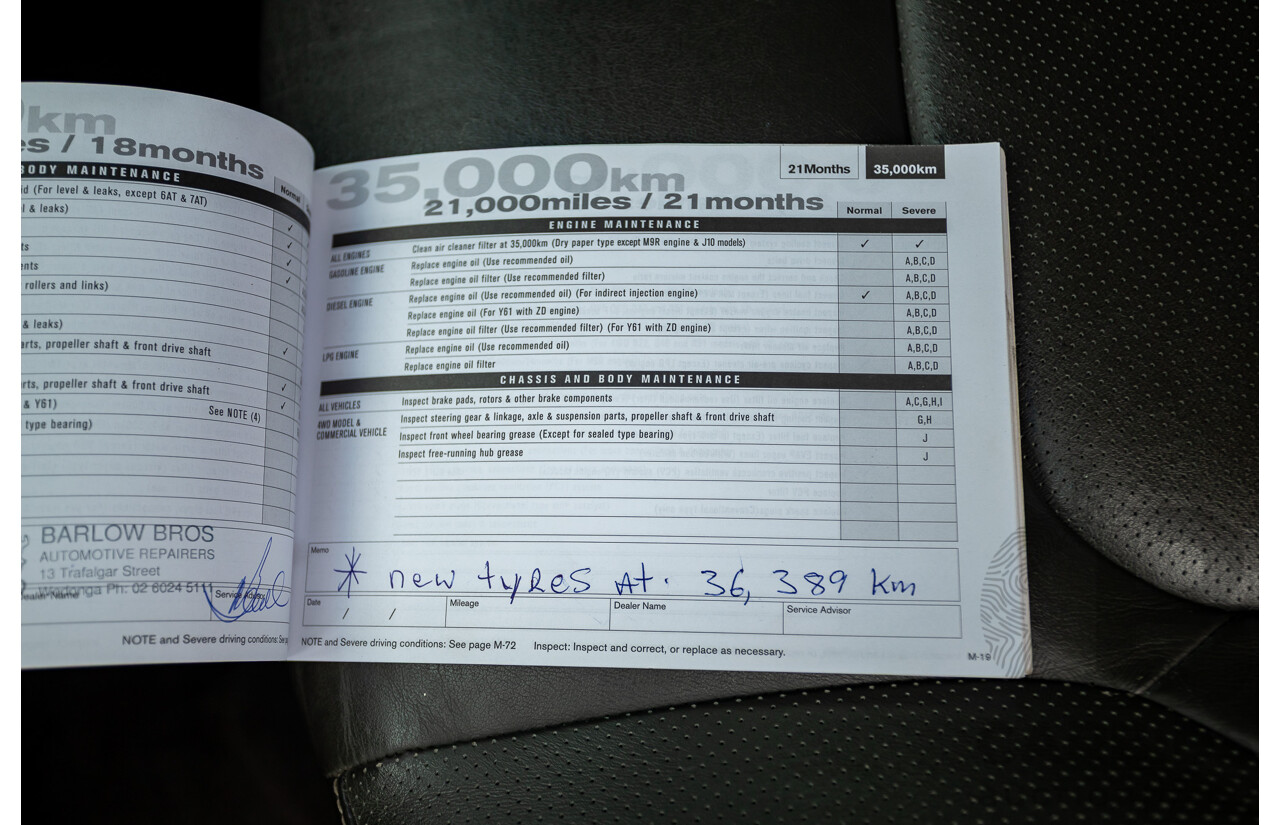 km
es / 18months
BODY MAINTENANCE
Normal
id (For level & leaks, except 6AT & 7AT)
l & leaks) ✓
✓
ts ✓
ents ✓
rollers and links)
& leaks)
arts, propeller shaft & front drive shaft ✓
rts, propeller shaft & front drive shaft ✓
& Y61) See NOTE (4) ✓
type bearing)
BARLOW BROS
AUTOMOTIVE REPAIRERS
13 Trafalgar Street
Wodonga Ph: 02 6024 5111
Dealer Name Service Advisor
NOTE and Severe driving conditions: See
35,000km
21,000miles / 21months
21Months 35,000km
Normal Severe
ENGINE MAINTENANCE
ALL ENGINES Clean air cleaner filter at 35,000km (Dry paper type except M9R engine & J10 models) ✓ ✓
GASOLINE ENGINE Replace engine oil (Use recommended oil) A,B,C,D
Replace engine oil filter (Use recommended filter) A,B,C,D
DIESEL ENGINE Replace engine oil (Use recommended oil) (For indirect injection engine) ✓ A,B,C,D
Replace engine oil (For Y61 with ZD engine) A,B,C,D
Replace engine oil filter (Use recommended filter) (For Y61 with ZD engine) A,B,C,D
LPG ENGINE Replace engine oil (Use recommended oil) A,B,C,D
Replace engine oil filter A,B,C,D
CHASSIS AND BODY MAINTENANCE
ALL VEHICLES Inspect brake pads, rotors & other brake components A,C,G,H,I
4WD MODEL & COMMERCIAL VEHICLE Inspect steering gear & linkage, axle & suspension parts, propeller shaft & front drive shaft G,H
Inspect front wheel bearing grease (Except for sealed type bearing) J
Inspect free-running hub grease J
Memo
* new tyRes At. 36,389 km
Date / / Mileage Dealer Name Service Advisor
NOTE and Severe driving conditions: See page M-72 Inspect: Inspect and correct, or replace as necessary.
M-19